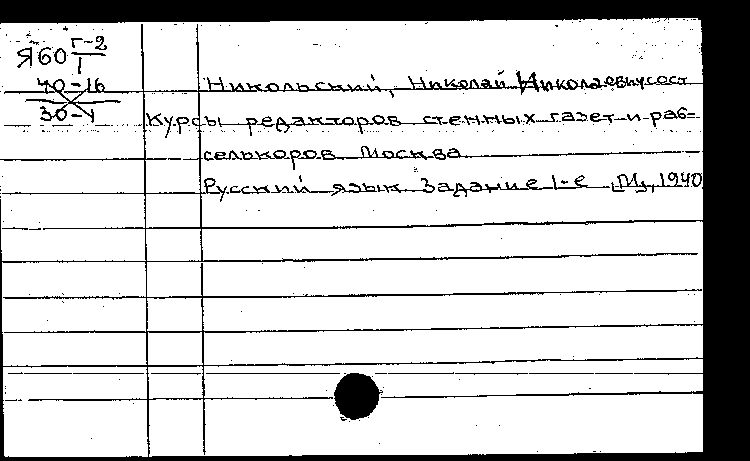 Я60 Г-2
1
40-16
30-4
Никольский, Николай Николаевич, сост
Курсы редакторов стенных газет и раб=
селькоров. Москва.
Русский язык. Задание 1-е [М], 1940